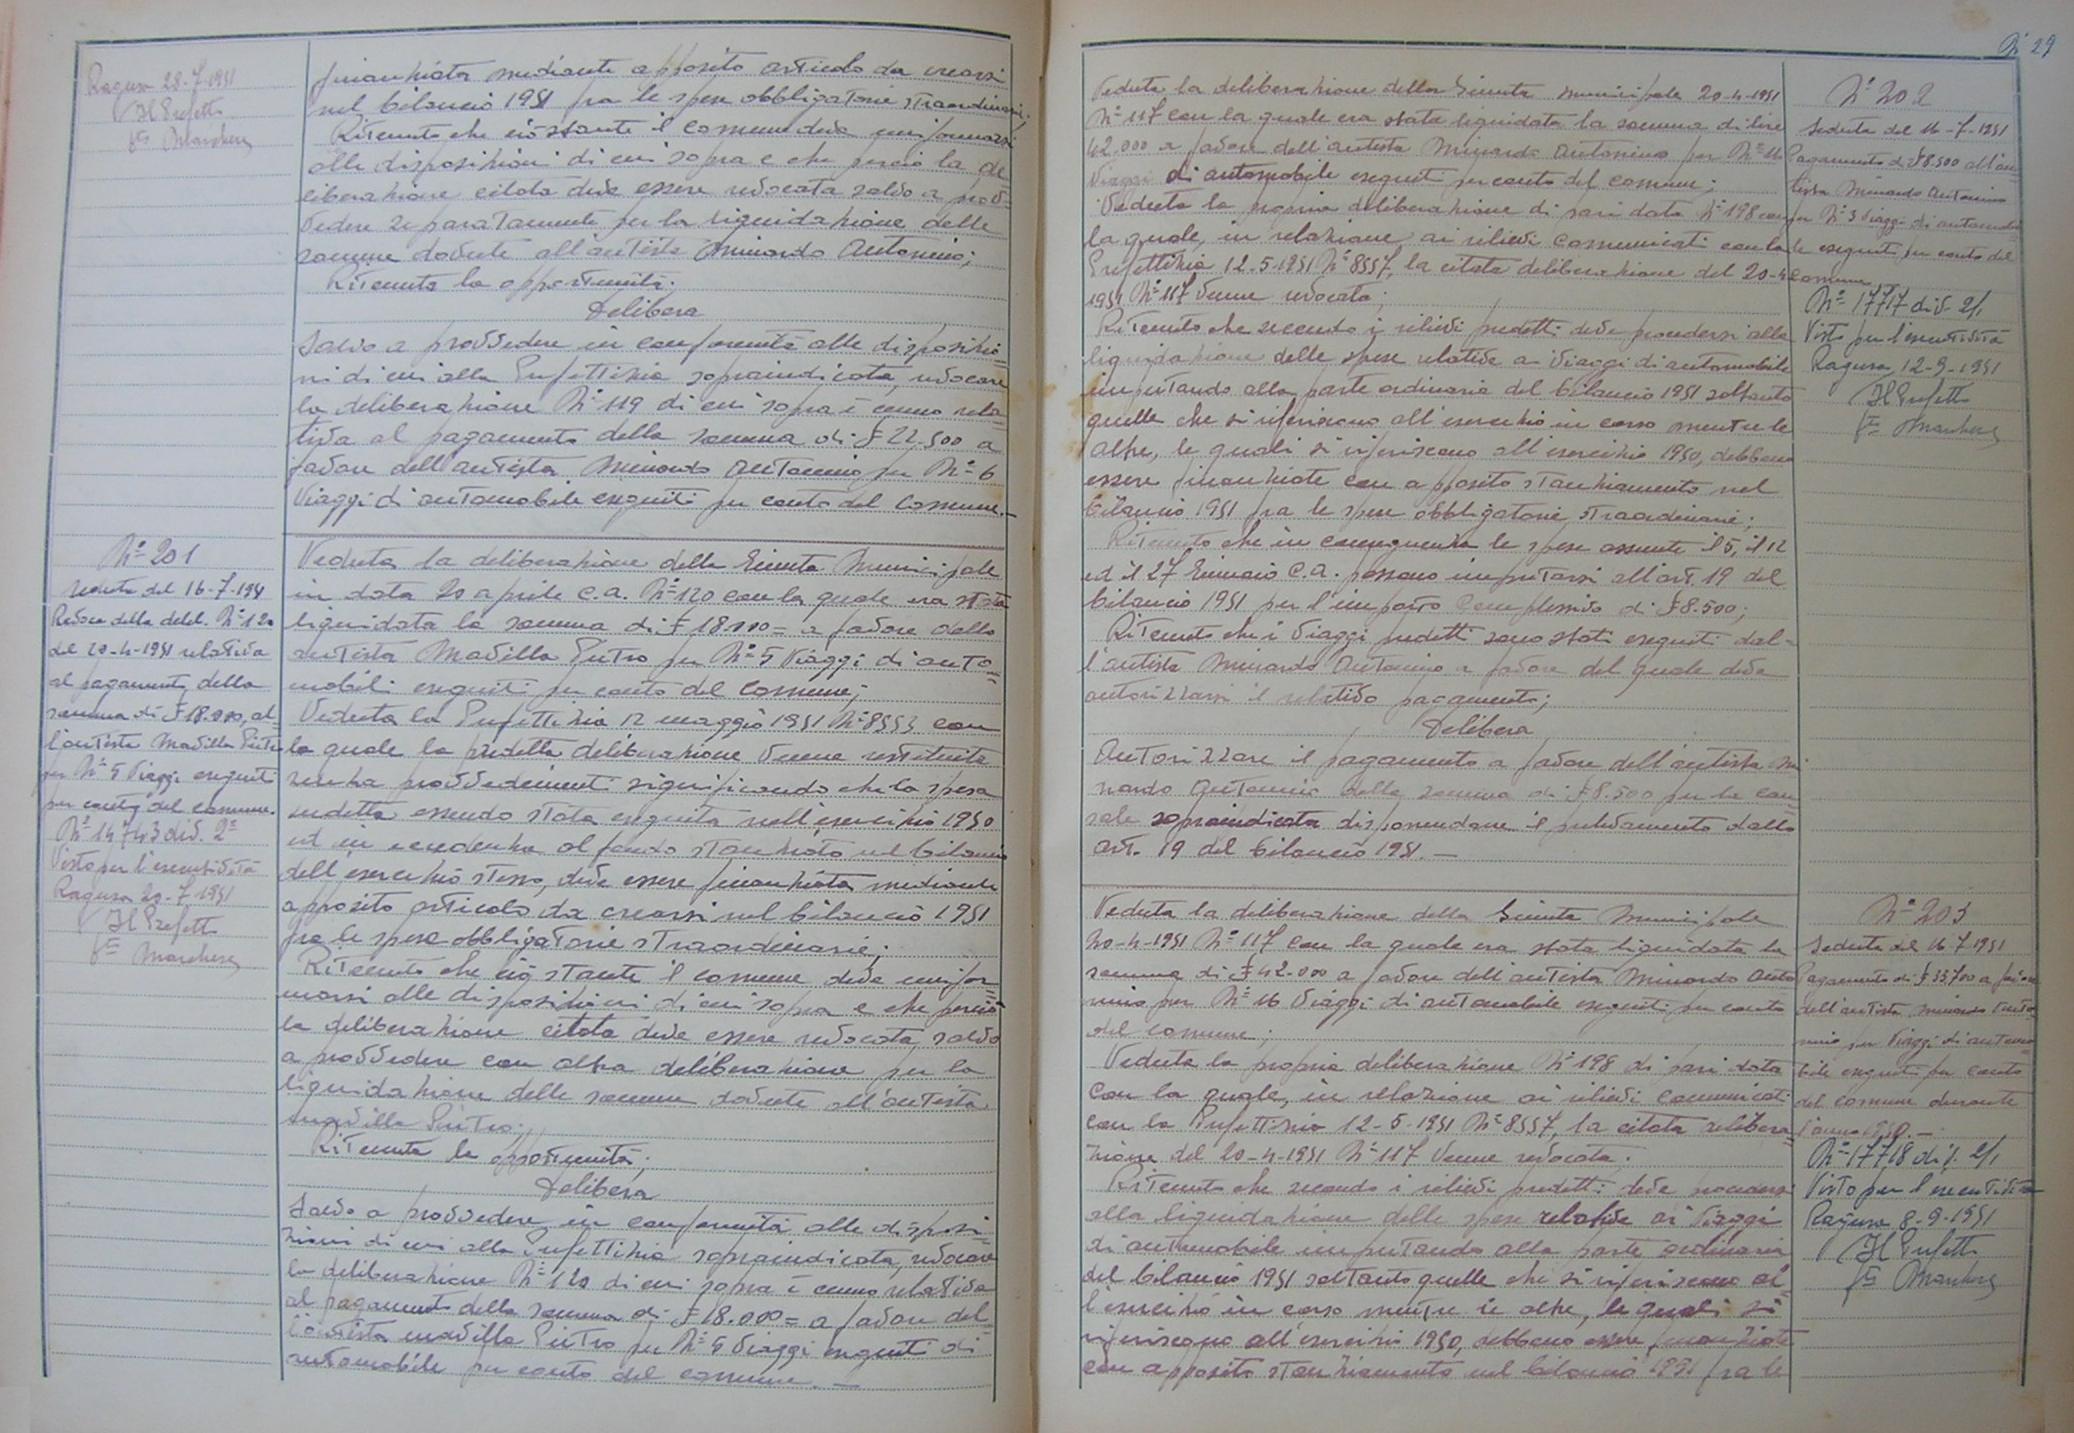 Ragusa 28-7-1951
Il Prefetto
fto Marchese
finanziata mediante apposito articolo da crearsi
nel bilancio 1951 fra le spese obbligatorie straordinarie;
Ritenuto che ciò stante il comune deve uniformarsi
alle disposizioni di cui sopra e che perciò la de
liberazione citata deve essere revocata salvo a prov-
vedere separatamente per la liquidazione delle
somme dovute all'autista Minardo Antonino;
Ritenuta la opportunità;
Delibera
Salvo a provvedere in conformità alle disposizio-
ni di cui alla Prefettizia sopraindicata, revocare
la deliberazione N° 119 di cui sopra è cenno rela-
tiva al pagamento della somma di £ 22.500 a
favore dell'autista Minardo Antonino per N° 6
Viaggi di automobile eseguiti per conto del Comune.-
N° 201
Seduta del 16-7-1951
Revoca della delib. N° 120
del 20-4-1951 relativa
al pagamento della
somma di £ 18.000, al-
l'autista Madilla Pietro
per N° 5 Viaggi eseguiti
per conto del comune.
N° 14743 div. 2ª
Visto per l'esecutività
Ragusa 20-7-1951
Il Prefetto
fto Marchese
Veduta la deliberazione della Giunta Municipale
in data 20 aprile c.a. N° 120 con la quale era stata
liquidata la somma di £ 18.000= a favore dello
autista Madilla Pietro per N° 5 Viaggi di auto-
mobili eseguiti per conto del comune;
Veduta la Prefettizia 12 maggio 1951 N° 8553 con
la quale la predetta deliberazione venne restituita
senza provvedimenti significando che la spesa
sudetta essendo stata eseguita nell'esercizio 1950
ed in eccedenza al fondo stanziato nel bilancio
dell'esercizio stesso, deve essere finanziata mediante
apposito articolo da crearsi nel bilancio 1951
fra le spese obbligatorie straordinarie;
Ritenuto che ciò stante il comune deve unifor-
marsi alle disposizioni di cui sopra e che perciò
la deliberazione citata deve essere revocata, salvo
a provvedere con altra deliberazione per la
liquidazione delle somme dovute all'autista
Madilla Pietro;
Ritenuta la opportunità;
Delibera
Salvo a provvedere, in conformità alle disposi-
zioni di cui alla Prefettizia sopraindicata, revocare
la deliberazione N° 120 di cui sopra è cenno relativa
al pagamento della somma di £ 18.000= a favore del-
l'autista Madilla Pietro per N° 5 Viaggi eseguiti di
automobile per conto del comune.-
N° 29
Veduta la deliberazione della Giunta Municipale 20-4-1951
N° 117 con la quale era stata liquidata la somma di lire
42.000 a favore dell'autista Minardo Antonino per N° 16
Viaggi di automobile eseguiti per conto del comune;
Veduta la propria deliberazione di pari data N° 198 con
la quale, in relazione ai rilievi comunicati con la
Prefettizia 12-5-1951 N° 8557, la citata deliberazione del 20-4
1951 N° 117 venne revocata;
Ritenuto che secondo i rilievi predetti deve procedersi alla
liquidazione delle spese relative ai viaggi di automobile
imputando alla parte ordinaria del bilancio 1951 soltanto
quelle che si riferiscono all'esercizio in corso mentre le
altre, le quali si riferiscono all'esercizio 1950, debbono
essere finanziate con apposito stanziamento nel
bilancio 1951 fra le spese obbligatorie straordinarie;
Ritenuto che in conseguenza le spese assunte il 5, il 12
ed il 27 Gennaio c.a. possono imputarsi all'art. 19 del
bilancio 1951 per l'importo complessivo di £ 8.500;
Ritenuto che i viaggi predetti sono stati eseguiti dal-
l'autista Minardo Antonino a favore del quale deve
autorizzarsi il relativo pagamento;
Delibera
Autorizzare il pagamento a favore dell'autista Mi
nardo Antonino della somma di £ 8.500 per le cau-
sale sopraindicata disponendone il prelevamento dallo
art. 19 del bilancio 1951.-
N° 202
Seduta del 16-7-1951
Pagamento di £ 8.500 all'au-
tista Minardo Antonino
per N° 3 viaggi di automobi-
le eseguiti per conto del
Comune
N° 17717 div. 2/1
Visto per l'esecutività
Ragusa, 12-9-1951
Il Prefetto
fto Marchese
Veduta la deliberazione della Giunta Municipale
20-4-1951 N° 117 con la quale era stata liquidata la
somma di £ 42.000 a favore dell'autista Minardo Anto
nino per N° 16 Viaggi di automobile eseguiti per conto
del comune;
Veduta la propria deliberazione N° 198 di pari data
con la quale, in relazione ai rilievi comunicati
con la Prefettizia 12-5-1951 N° 8557, la citata delibera-
zione del 20-4-1951 N° 117 venne revocata;
Ritenuto che secondo i rilievi predetti deve procedersi
alla liquidazione delle spese relative ai viaggi
di automobile imputando alla parte ordinaria
del bilancio 1951 soltanto quelle che si riferiscono al-
l'esercizio in corso mentre le altre, le quali si
riferiscono all'esercizio 1950, debbono essere finanziate
con apposito stanziamento nel bilancio 1951 fra le
N° 203
Seduta del 16-7-1951
Pagamento di £ 33.500 a favore
dell'autista Minardo Anto-
nino per Viaggi di automo-
bile eseguiti per conto
del comune durante
l'anno 1950.-
N° 17718 div. 2/1
Visto per l'esecutività
Ragusa 8-9-1951
Il Prefetto
fto Marchese